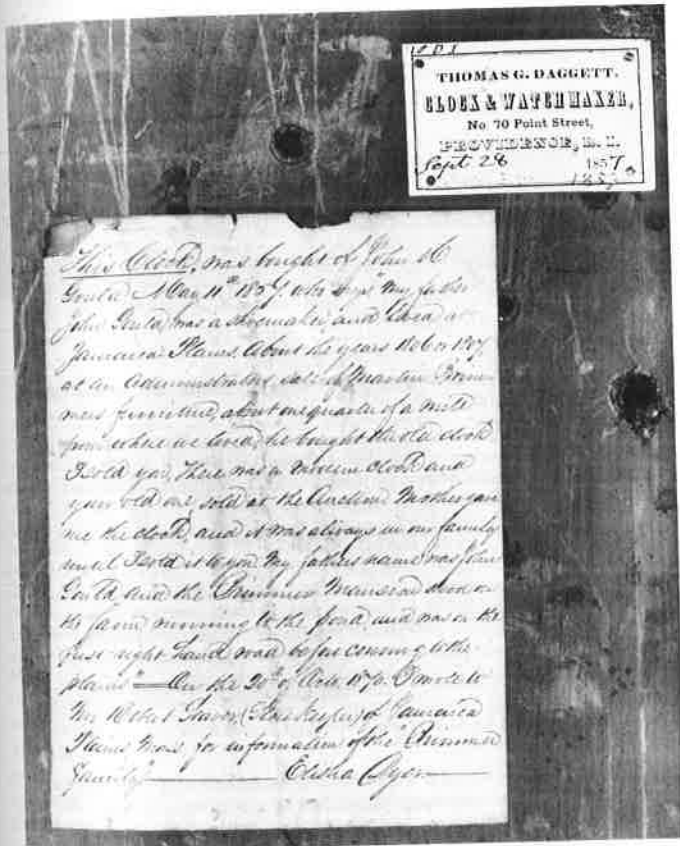 THOMAS G. DAGGETT,
CLOCK & WATCH MAKER,
No 70 Point Street,
PROVIDENCE, R. I.
Sept 28 1857
This Clock, was bought of John
Gould May 11th 1857, who says "my father
John Gould, was a shoemaker, and lived at
Jamaica Plains. About the years 1806 or 1807,
at an Administrators sale of Martin Brim-
mers furniture, about one quarter of a mile
from where we lived, he bought the old clock
I sold you, there was a modern clock and
your old one sold at the Auction. Mother gave
me the clock, and it was always in our family
until I sold it to you. My fathers name was John
Gould and the Brimmer Mansion stood on
the farm running to the pond, and was on the
first right hand road before coming to the
plains" — On the 20th of 1870. I wrote to
Mr Robert Seaver, of Jamaica
Plains Mass, for information of the "Brimmer
family" — Elisha Dyer —